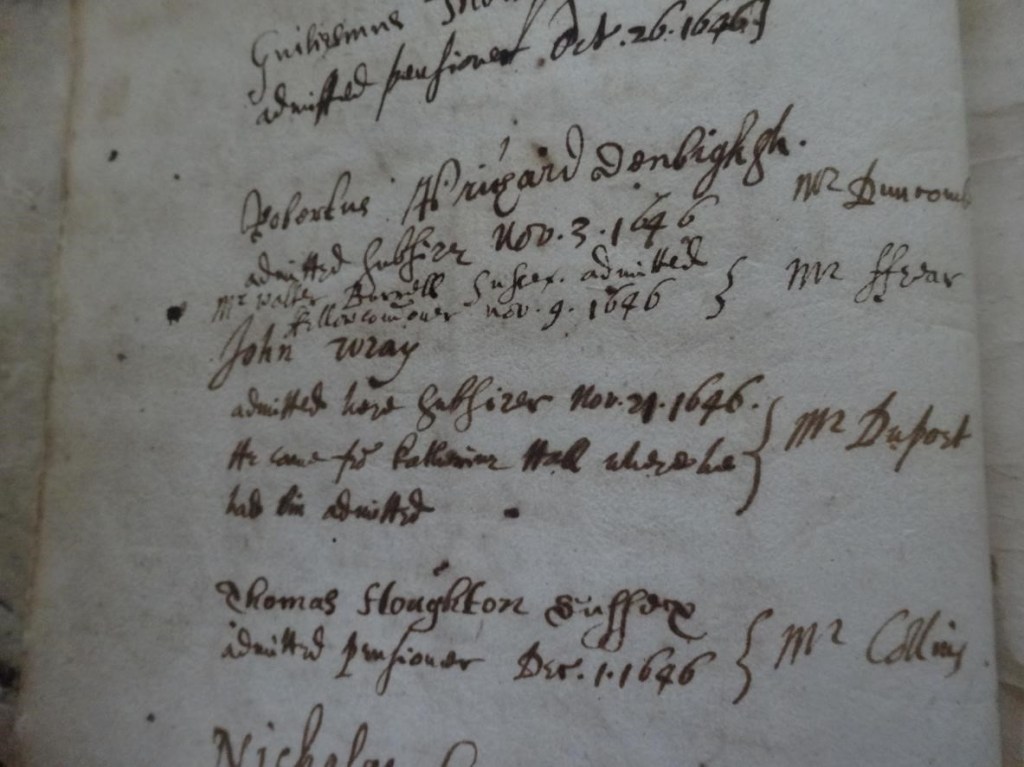 Guilielmus
admitted pensioner Oct. 26. 1646]
Robertus Prichard Denbighsh. Mr Duncomb
admitted subsizer Nov. 3. 1646
Mr Walter Burrell Sussex. admitted
fellowcommoner nov. 9. 1646 } Mr ffrear
John Wray
admitted here subsizer Nov. 21. 1646.
He came frō Katherine Hall where he } Mr Duport
had bin admitted
Thomas Houghton Sussex
admitted pensioner Dec. 1. 1646 } Mr Collins
Nicholas